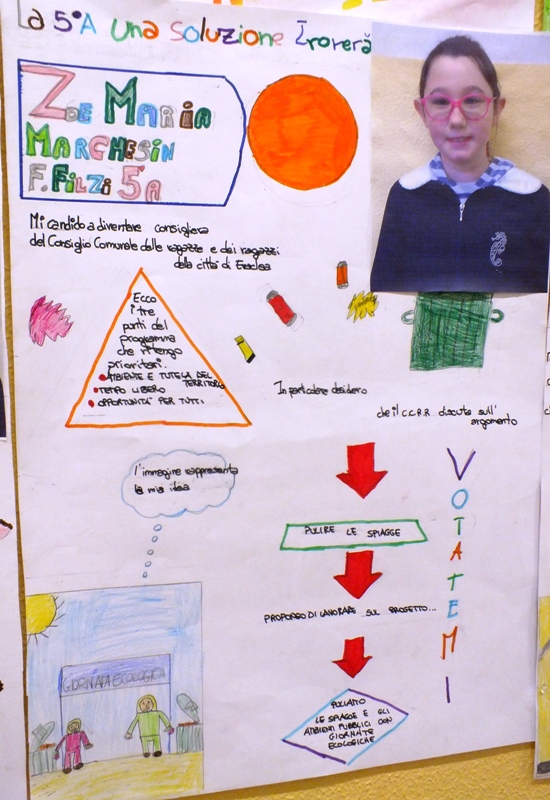 La 5ªA una soluzione troverà
Zoe Maria
Marchesin
F. Filzi 5ªA
Mi candido a diventare consigliera
del Consiglio Comunale delle ragazze e dei ragazzi
della città di Eraclea
Ecco
i tre
punti del
programma
che ritengo
prioritari.
• AMBIENTE E TUTELA DEL
TERRITORIO
• TEMPO LIBERO
• OPPORTUNITA' PER TUTTI
In particolare desidero
che il C.C.R.R. discuta sull'
argomento
l'immagine rappresenta
la mia idea
PULIRE LE SPIAGGE
PROPONGO DI LAVORARE SUL PROGETTO...
PULIAMO
LE SPIAGGE E GLI
AMBIENTI PUBBLICI CON
GIORNATE
ECOLOGICHE
VOTATEMI
GIORNATA ECOLOGICA